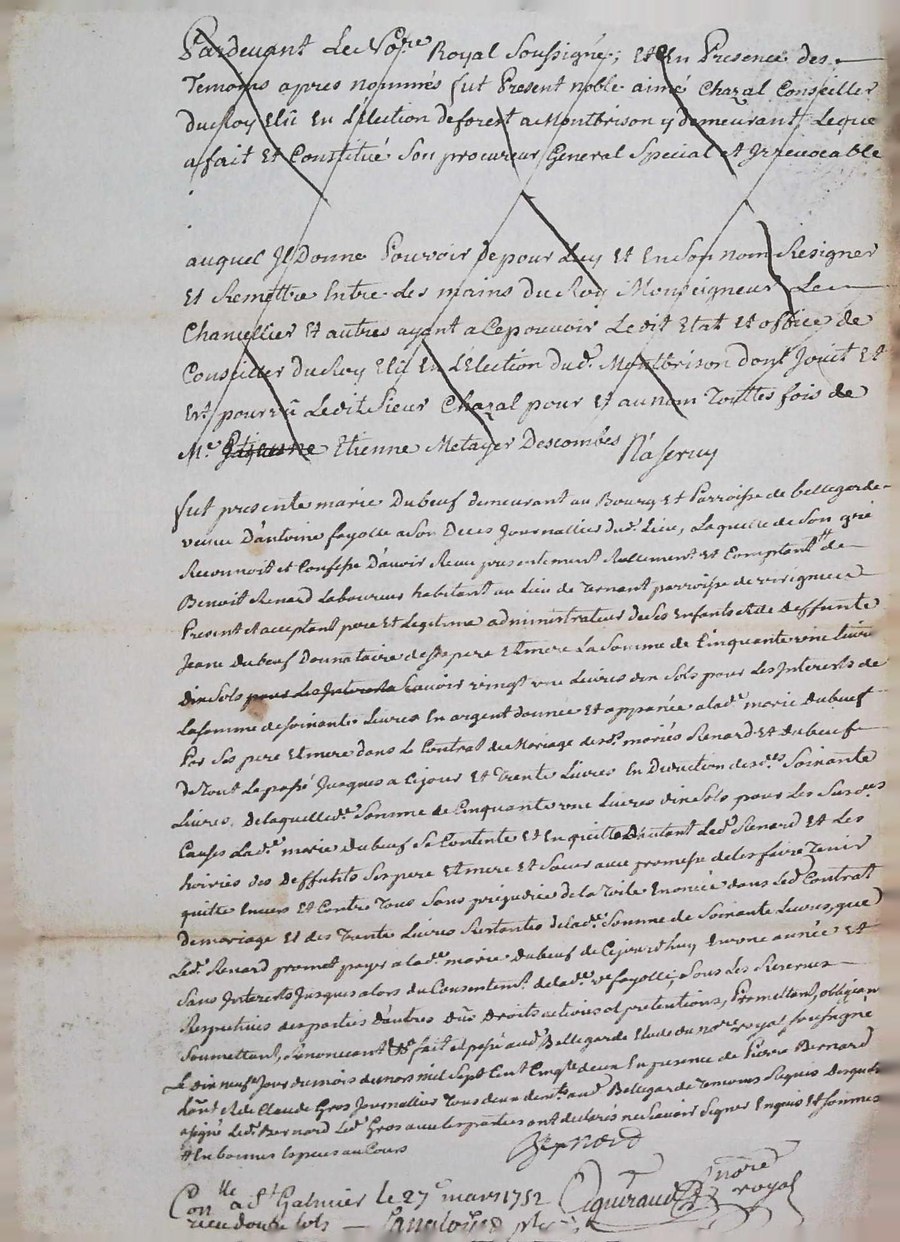 Pardevant Le No.re Royal Soussigné; Et En Presence des
Temoins apres nommés fut Present noble aimé Chazal Conseiller
Du Roy Elû En L'élection de forest a Montbrison y demeurant, Leque
a fait Et Constitué Son procureur General Special et Irrevocable
auquel Il Donne Pouvoir De pour Luy Et En Son nom Resigner
Et Remettre Entre Les mains Du Roy Monseigneur Le
Chancellier Et autres ayant a Ce pouvoir Le dit Etat et office de
Conseiller Du Roy Elû En L'Election du d. Montbrison dont Jouit Et
Est pourvû Le dit Sieur Chazal pour Et au nom Touttes fois de
M.e Etienne Metayer Descombes N'a servy
fut presente marie Dubeuf demeurant au Bourg Et Parroisse de bellegarde
veuve D'antoine fayolle a Son Deces Journallier du d. Lieu, Laquelle de Son gré
Reconnoit et Confesse D'avoir Receu presentement Reellement et Comptant # de
Benoit Renard Laboureur habitant au Lieu de Ternant parroisse de virigneux
Present et acceptant pere Et Legitime administrateur de Ses Enfants et de deffunte
Jeane Dubeuf Donnataire de Ses pere Et mere La Somme de Cinquante une Livres
dix Sols pour Les Interets Savoir vingt une Livres dix Sols pour Les Interests de
La Somme de Soixante Livres En argent donnée Et a la d. marie Dubeuf
Par Ses pere Et mere dans Le Contrat de Mariage des d. mariés Renard Et Dubeuf
De Tout Le passé Jusques a Cejour Et Trente Livres En Diminution des d. Soixante
Livres. De laquelle d. Somme de Cinquante une Livres dix Sols pour Les Sus d.
Causes La d. marie Dubeuf Se Contente Et En quitte Le d. Renard Et Les
hoiries des Deffunts Ses pere Et mere Et Soeur avec promesse de Les faire Tenir
quitte Envers Et Contre Tous Sans prejudice de la Toile Enoncée dans Le d. Contrat
De mariage Et des Trente Livres Restantes de la d. Somme de Soixante Livres, que
Le d. Renard promet payer a la d. marie Dubeuf de Cejourd'huy En une année Et
Sans Interests Jusques alors du Consentem.t de la d. v.e fayolle; Sous Les Reserves
Respectives des parties D'autres Dûs Droits actions et pretentions, Promettant, obligeant
Soumettant, Renonceant fait et passé au d. Bellegarde Etude du no.re royal soussigné
Le dix neuf.e Jour du mois de mars mil Sept Cent Cinq.te deux En presence de Pierre Bernard
et de Claude Gros Journallier Tous deux au d. Bellegarde Temoins Requis Desquels
a signé Le d. Bernard Le d. Gros avec Les parties ont declaré ne Savoir Signer Enquis Et Sommés
# En bonnes Especes au Cours
Bernard
Con.lle a S.t Galmier le 27.e mars 1752
receu douze sols
no.re
royal